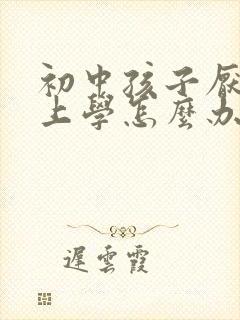 初中孩子厌
上學怎麼办
遲雲霞